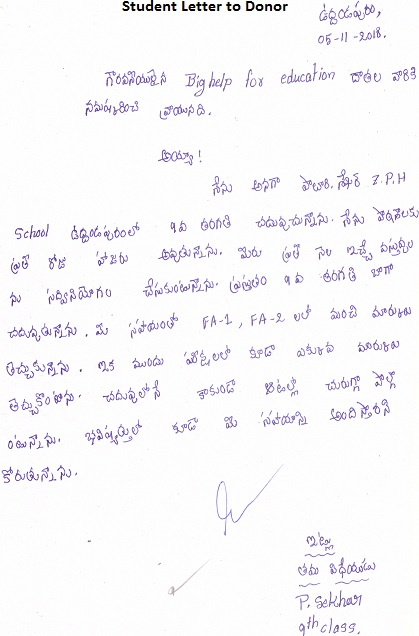 Student Letter to Donor
ఉద్దండపురం,
05-11-2018.
గౌరవనీయులైన Big help for education దాతల వారికి
నమస్కరించి వ్రాయునది.
అయ్యా!
నేను అనగా పొలారి. శేఖర్ Z.P.H
School ఉద్దండపురంలో 9వ తరగతి చదువుచున్నాను. నేను పాఠశాలకు
ప్రతి రోజు హాజరు అవుతున్నాను. మీరు ప్రతి నెల ఇచ్చే వస్తువుల
ను సద్వినియోగం చేసుకుంటున్నాను. ప్రస్తుతం 9వ తరగతి బాగా
చదువుతున్నాను. మీ సహాయంతో FA-1, FA-2 లలో మంచి మార్కులు
తెచ్చుకున్నాను. ఇక ముందు పరీక్షలలో కూడా ఎక్కువ మార్కులు
తెచ్చుకొంటాను. చదువులోనే కాకుండా ఆటల్లో చురుగ్గా పాల్గొ
ంటున్నాను. భవిష్యత్తులో కూడా మీ సహాయాన్ని అందిస్తారని
కోరుతున్నాను.
ఇట్లు
తమ విధేయుడు
P. Sekhar
9th class.